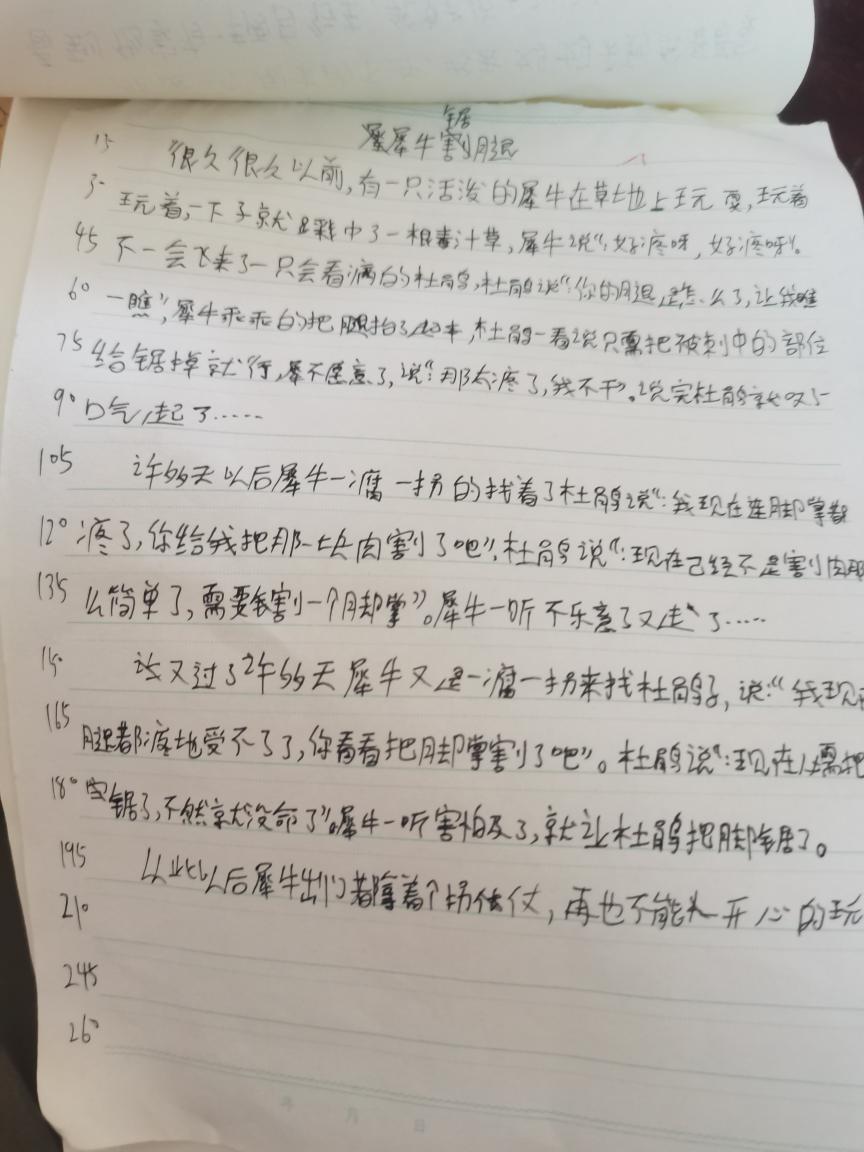 锯
犀犀牛割腿
15 很久很久以前,有一只活泼的犀牛在草地上玩耍,玩着
30 玩着,一下子就踩中了一根毒汁草,犀牛说“好疼呀,好疼呀”。
45 不一会飞来了一只会看病的杜鹃,杜鹃说“:你的腿是怎么了,让我瞧
60 一瞧”,犀牛乖乖的把腿抬了起来,杜鹃一看说只需把被刺中的部位
75 给锯掉就行,犀不愿意了,说“:那太疼了,我不干”。说完杜鹃就叹了
90 口气,走了……
105 许多天以后犀牛一瘸一拐的找着了杜鹃说“:我现在连脚掌都
120 疼了,你给我把那一块肉割了吧”,杜鹃说“:现在已经不是割肉那
135 么简单了,需要锯割一个脚掌”。犀牛一听不乐意了又走了……
150 又过了许多天犀牛又是一瘸一拐来找杜鹃,说:“我现在
165 腿都疼地受不了了,你看看把脚掌割了吧”。杜鹃说“:现在必需把
180 锯了,不然就没命了”。犀牛一听害怕极了,就让杜鹃把脚锯了。
195 从此以后犀牛出门都撑着个拐仗,再也不能开心的玩
210
245
260
年 月 日